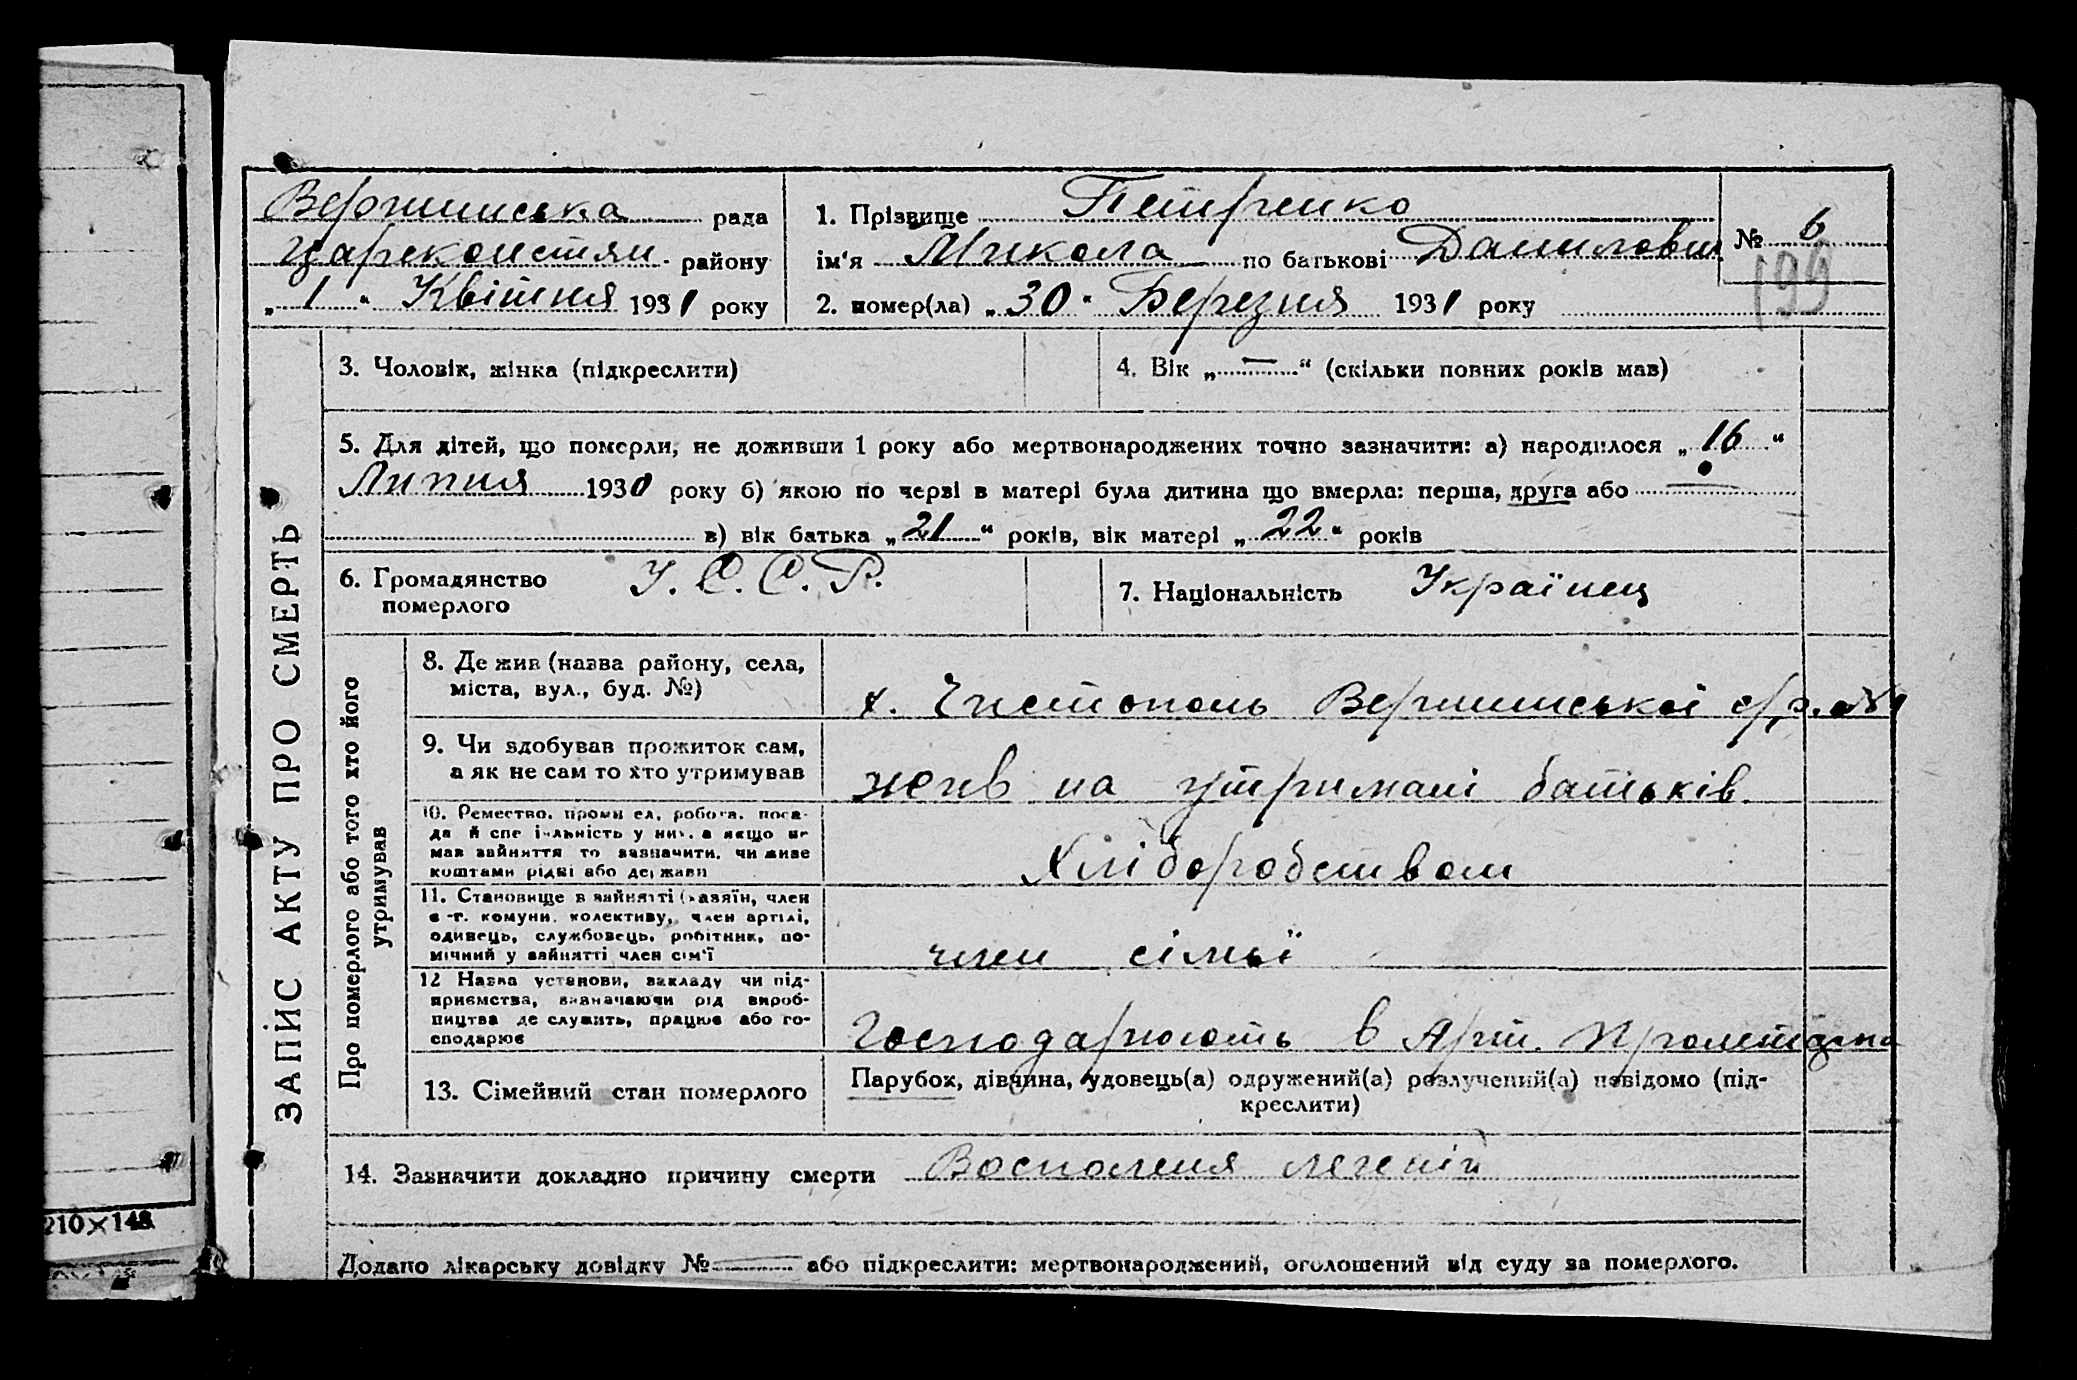 Вершинська рада
Царекостян. району
„1“ Квітня 1931 року
1. Прізвище Петренко
ім'я Микола по батькові Данилович
2. помер(ла) „30“ Березня 1931 року
№ 6
199
ЗАПИС АКТУ ПРО СМЕРТЬ
3. Чоловік, жінка (підкреслити)
4. Вік „—“ (скільки повних років мав)
5. Для дітей, що померли, не доживши 1 року або мертвонароджених точно зазначити: а) народилося „16“
Липня 1930 року б) якою по черзі в матері була дитина що вмерла: перша, друга або —
в) вік батька „21“ років, вік матері „22“ років
6. Громадянство
померлого
У. С. С. Р.
7. Національність Українец
Про померлого або того хто його
утримував
8. Де жив (назва району, села,
міста, вул., буд. №)
х. Чистополь Вершинської с/р. №1
9. Чи здобував прожиток сам,
а як не сам то хто утримував
жив на утримані батьків
10. Ремество, промисел, робота, поса-
да й спеціяльність у них, а якщо не
мав зайняття то зазначити, чи живе
коштами рідні або держави
Хліборобством
11. Становище в зайнятті (хазяїн, член
с.-г. комуни, колективу, член артілі,
одивець, службовець, робітник, по-
мічний у зайнятті член сім'ї
член сімьї
12 Назва установи, закладу чи під-
приємства, зазначаючи рід вироб-
ництва де служить, працює або го-
сподарює
Господарюють в Арт.
13. Сімейний стан померлого
Парубок, дівчина, удовець(а) одружений(а) розлучений(а) невідомо (під-
креслити)
14. Зазначити докладно причину смерти Воспаления легенів
Додано лікарську довідку №— або підкреслити: мертвонароджений, оголошений від суду за померлого.
210×148